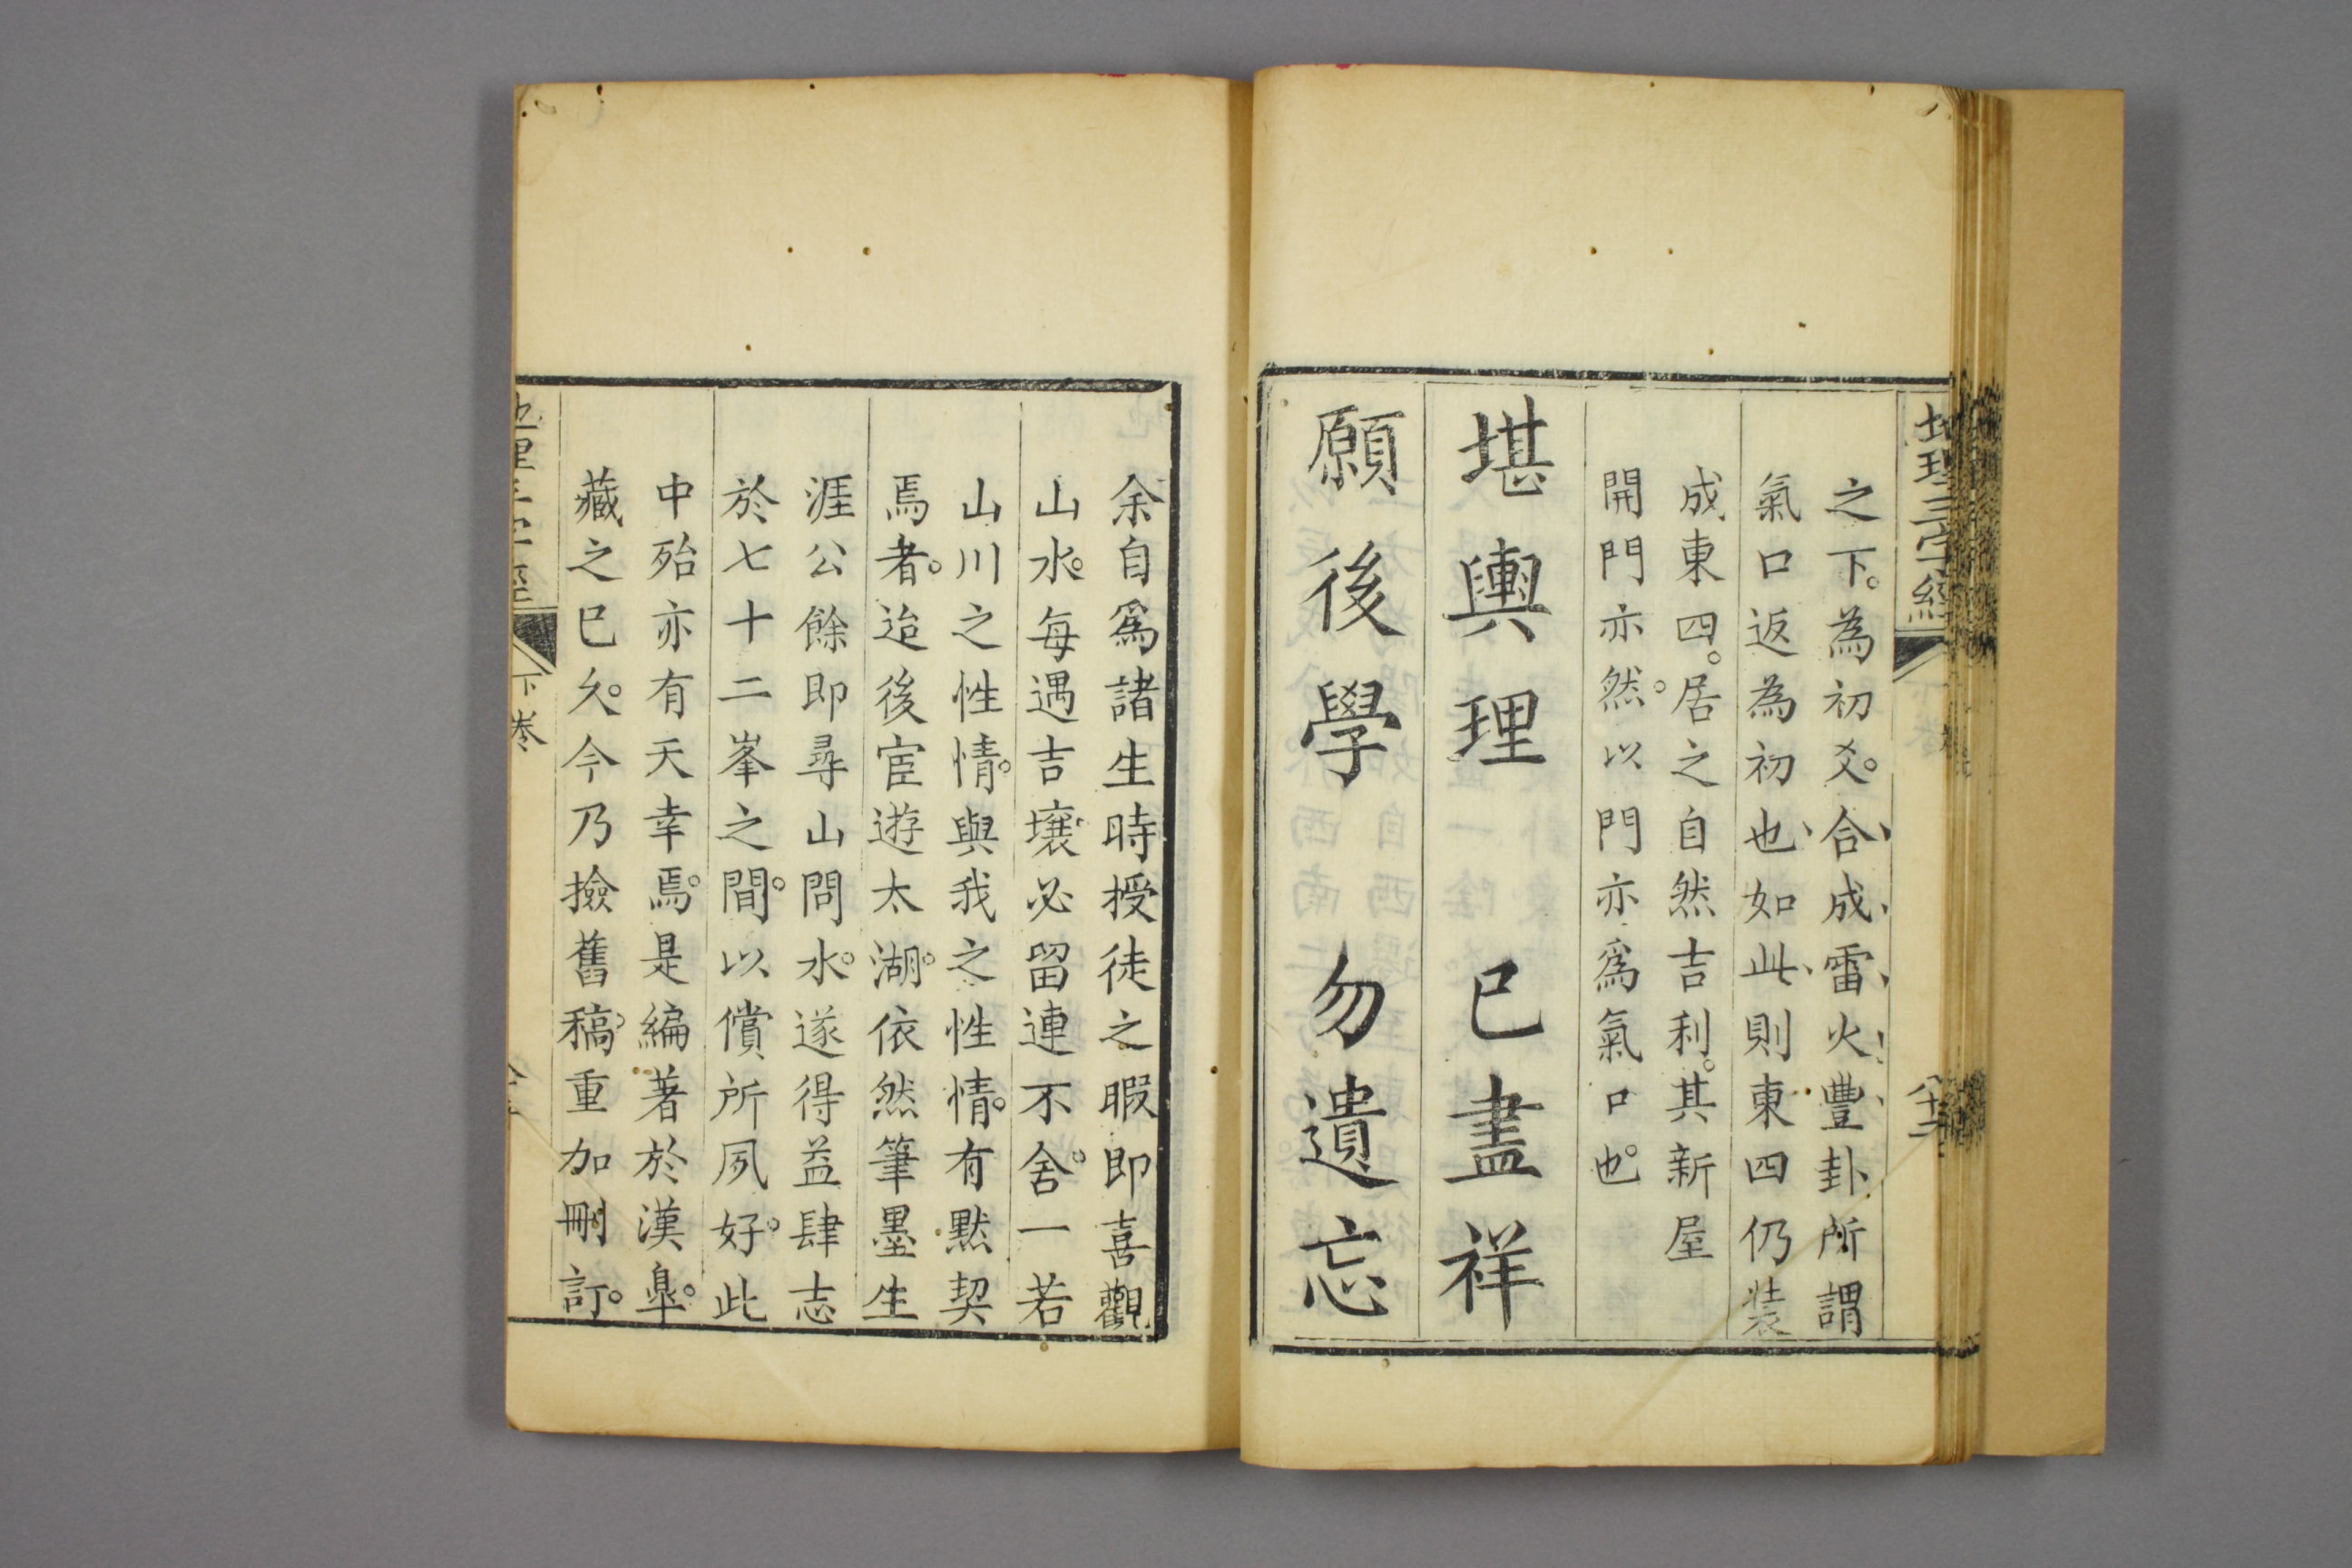 地理三字經
八十二
之下。為初爻。合成雷火豐卦所謂
氣口返為初也如此則東四仍裝
成東四。居之自然吉利。其新屋
開門亦然。以門亦爲氣口也。
堪輿理 已盡祥
願後學 勿遺忘
余自爲諸生時授徒之暇即喜觀
山水。每遇吉壤必留連不舍。一若
山川之性情。與我之性情。有默契
焉者。迨後宦遊太湖。依然筆墨生
涯公餘即尋山問水。遂得益肆志
於七十二峯之間。以償所夙好。此
中殆亦有天幸焉。是編著於漢臯。
藏之已久。今乃撿舊稿。重加刪訂。
下卷